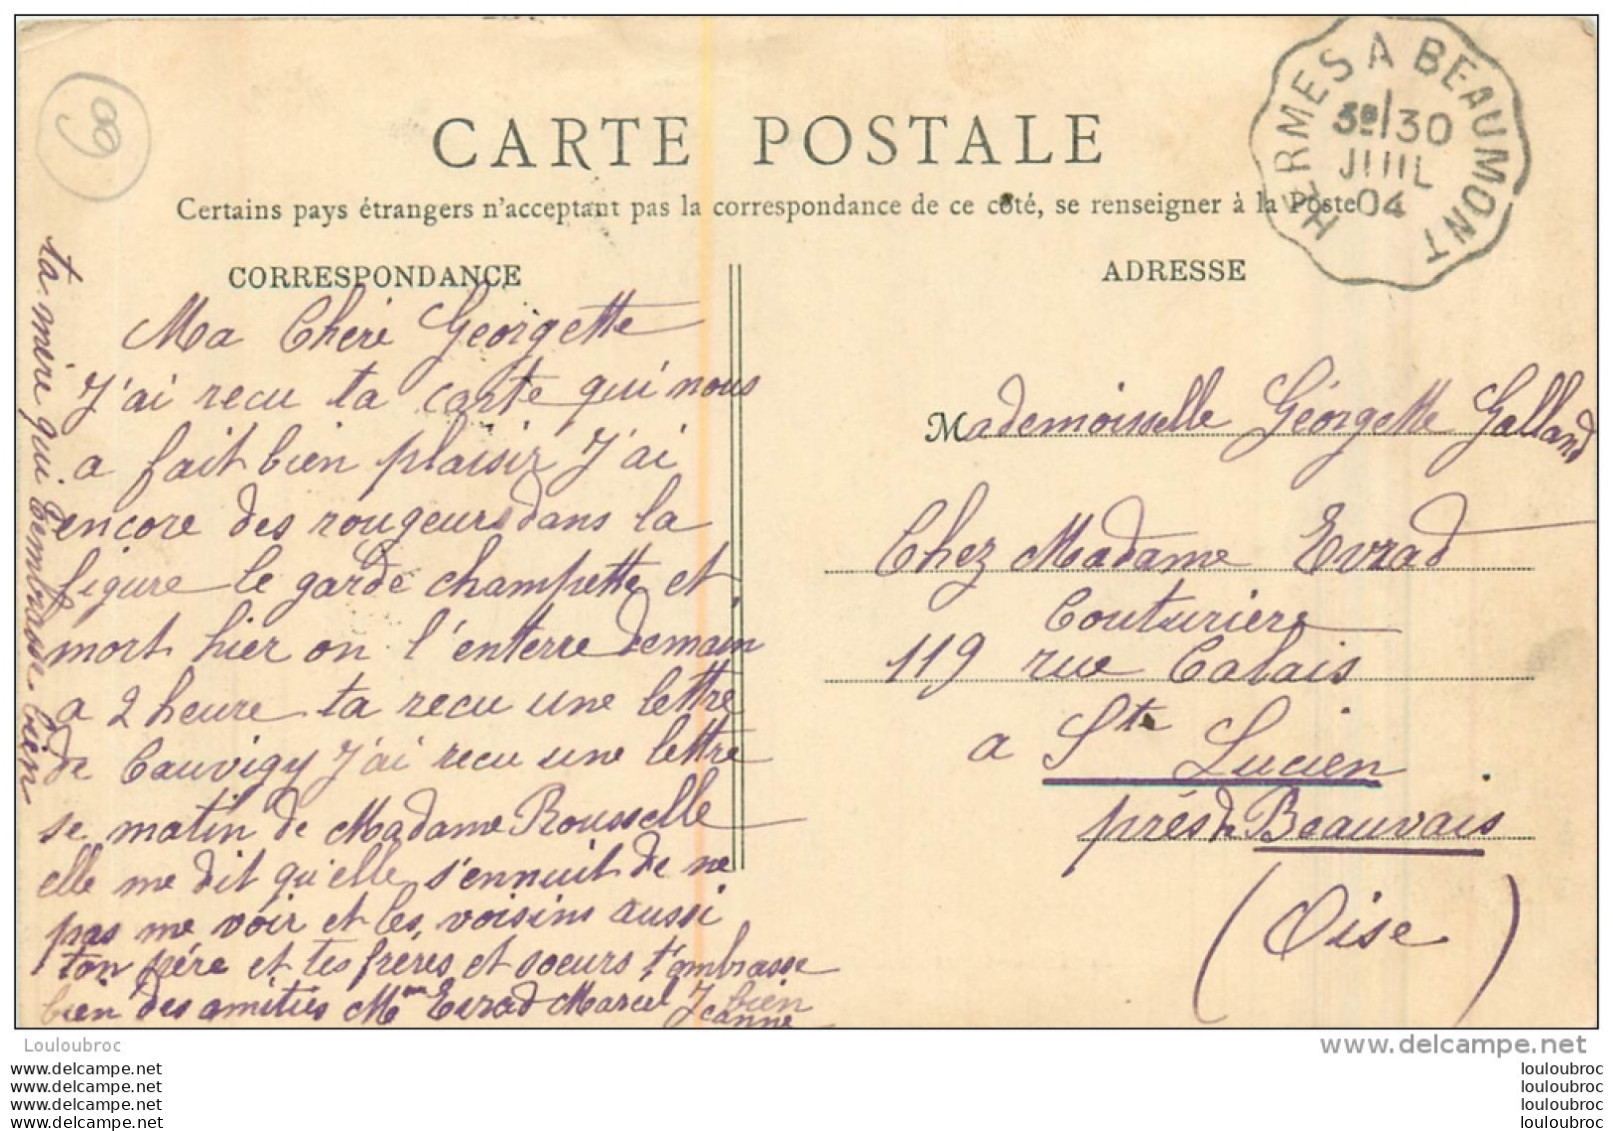 CARTE POSTALE
Certains pays étrangers n'acceptent pas la correspondance de ce côté, se renseigner à la Poste
HERMES A BEAUMONT
3e/30
JUIL
04
69
CORRESPONDANCE
ADRESSE
Ma Cheri Georgette
J'ai recu ta carte qui nous
a fait bien plaisir J'ai
encore des rougeurs dans la
figure le garde champette et
mort hier on l'enterre demain
a 2 heure ta recu une lettre
de Cauvigy J'ai recu une lettre
se matin de Madame Rousselle
elle me dit qu'elle s'ennuit de ne
pas me voir et les voisins aussi
ton père et tes frères et soeurs t'ambrasse
bien des amitiés Mme Evrad Marcel Jeanne
bien
ta mère qui t'embrasse bien
Mademoisselle Géorgette Galland
Chez Madame Evrad
Couturière
119 rue Calais
a Ste Lucien
prés de Beauvais
(Oise)
Louloubroc
www.delcampe.net
www.delcampe.net
www.delcampe.net
www.delcampe.net
www.delcampe.net
louloubroc
louloubroc
louloubroc
louloubroc